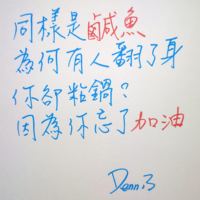 同樣是鹹魚
為何有人翻了身
你卻粘鍋?
因為你忘了加油
Dennis